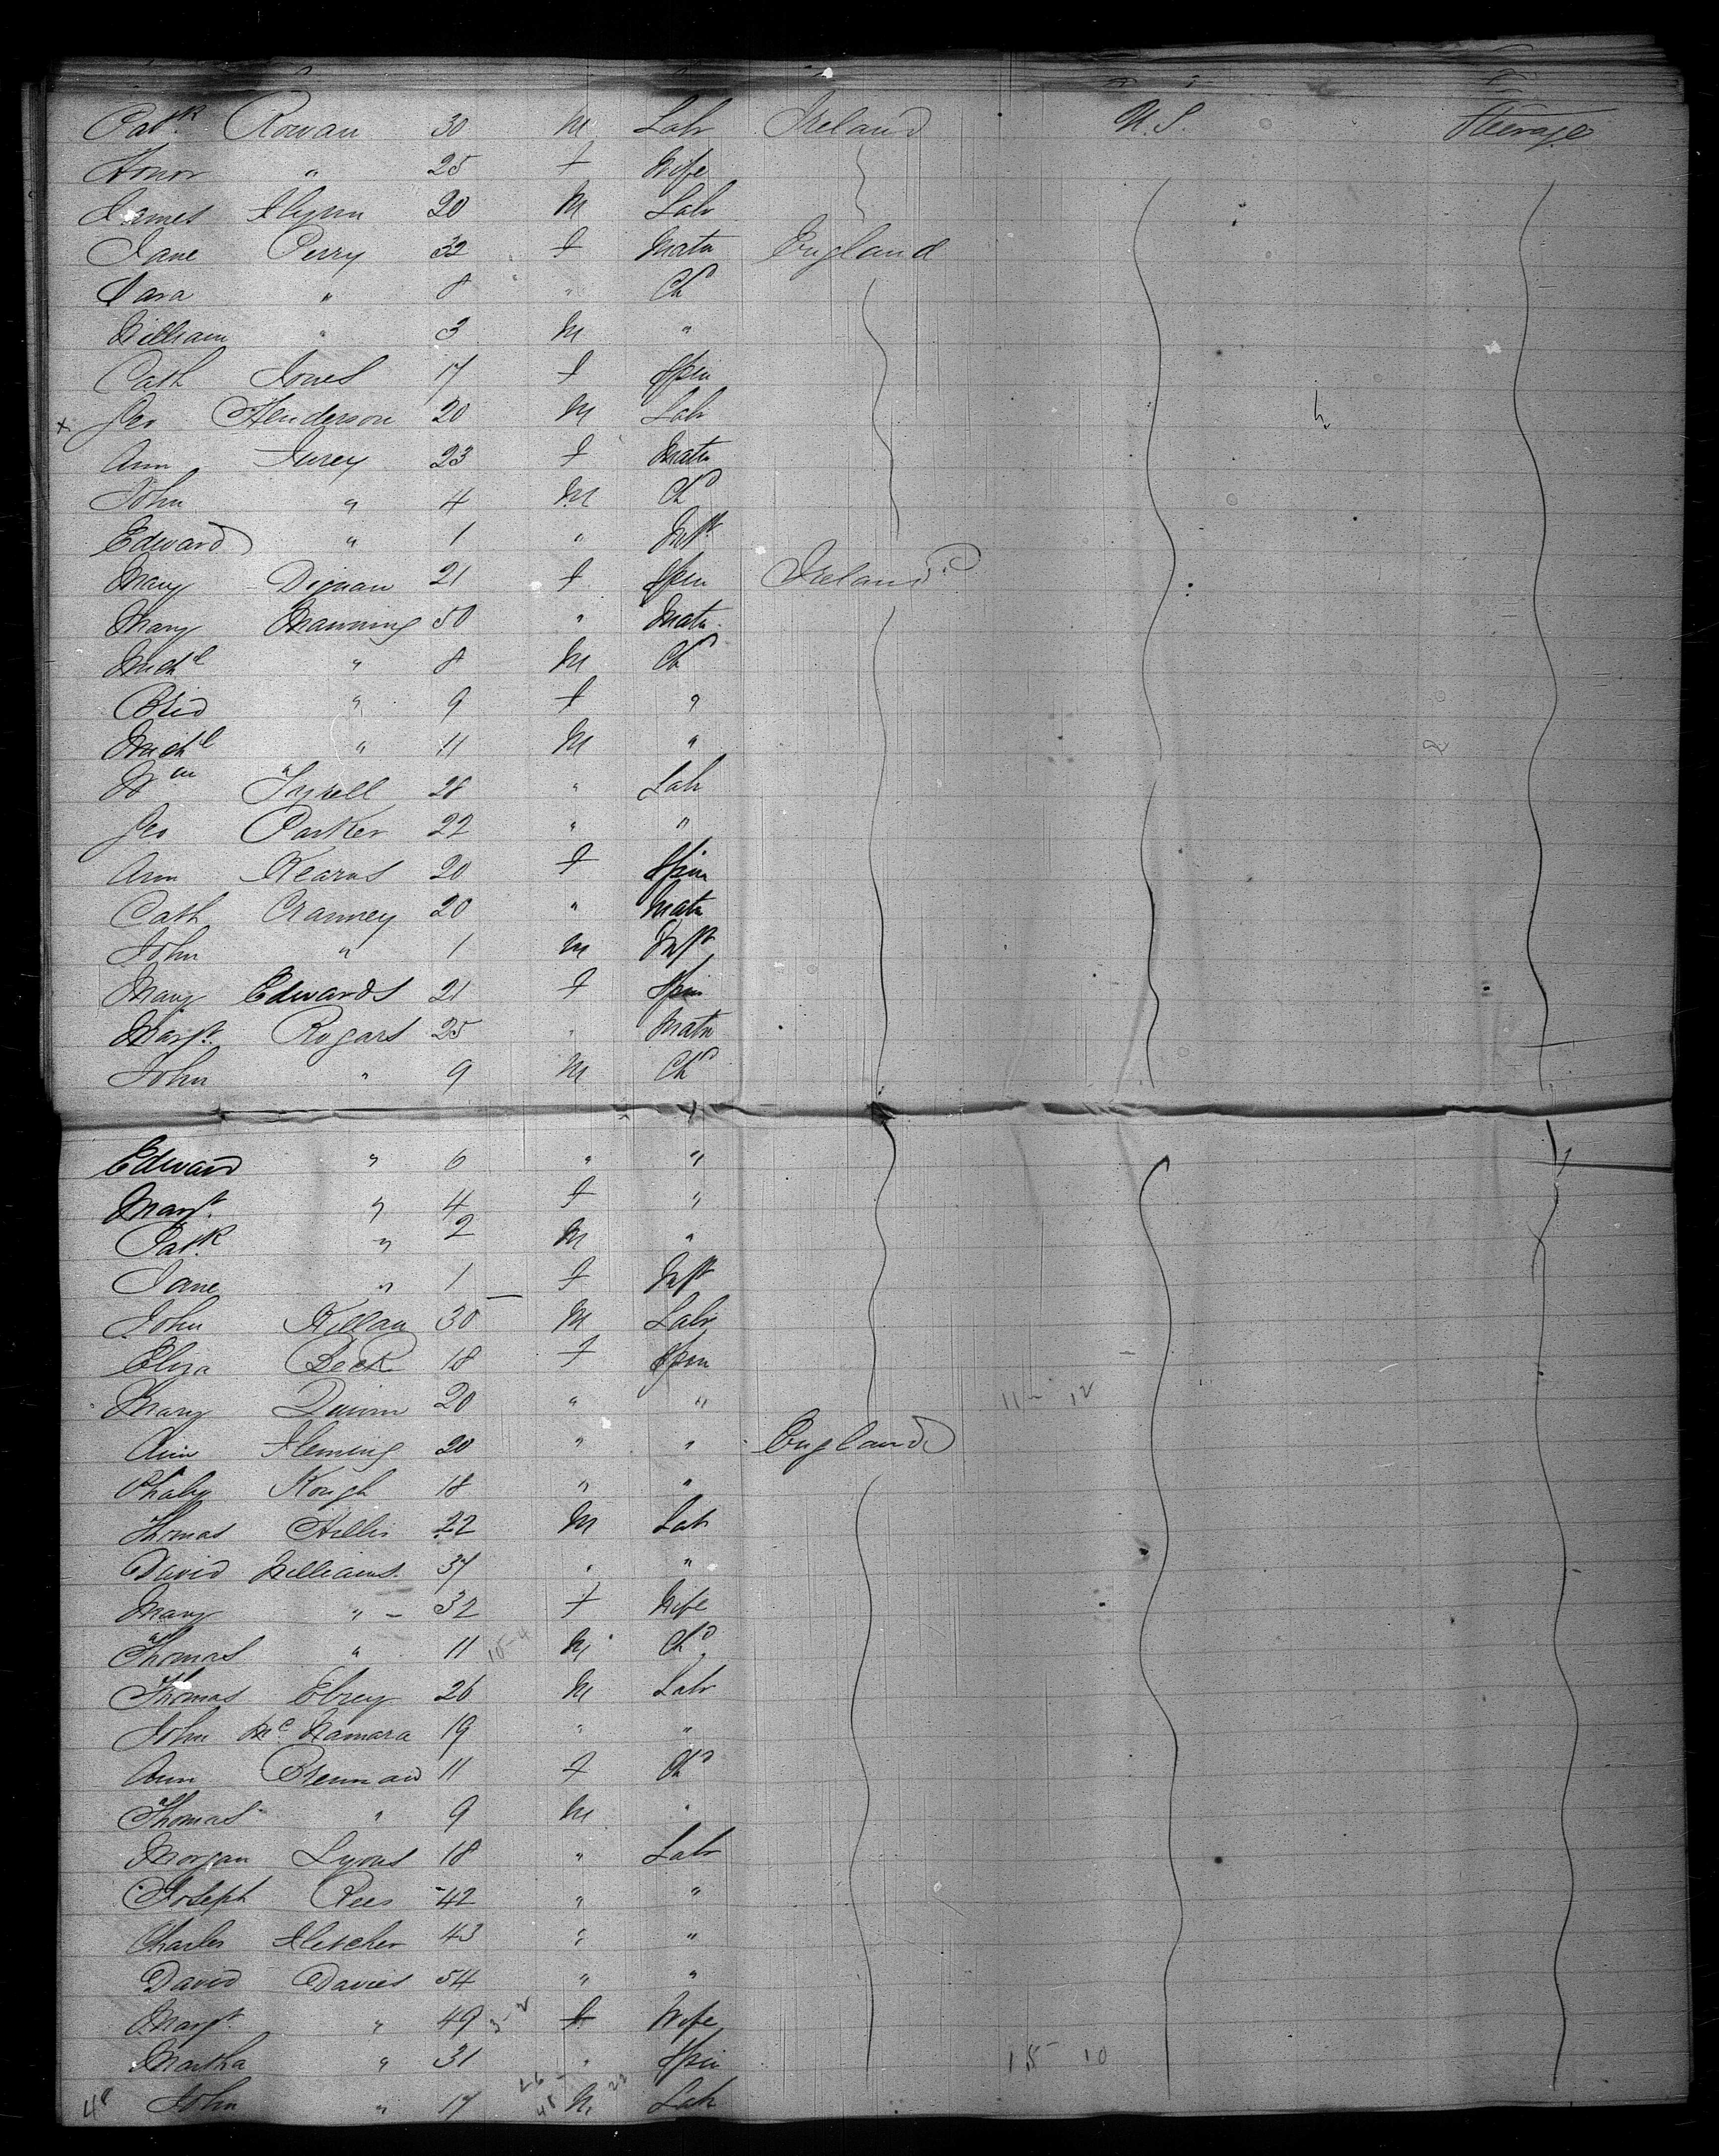 Patk Rowan 30 M Labr Ireland U.S. Steerage
Honor " 25 f Wife
James Flynn 20 M Labr
Jane Perry 32 f Matn England
Sara " 8 " Chd
William " 3 M "
Cath Jones 17 f Spin
x Geo Henderson 20 M Labr
Ann Furey 23 f Matn
John " 4 M Chd
Edward " 1 " Inft
Mary Dignan 21 f Spin Ireland
Mary Manning 50 " Matn
Michl " 8 M Chd
Brid " 9 f "
Michl " 11 M "
Wm Tyrell 28 " Labr
Geo Parker 22 " "
Ann Kearns 20 f Spin
Cath Cranney 20 " Matn
John " 1 M Inft
Mary Edwards 21 f Spin
Margt Rogars 25 " Matn
John " 9 M Chd
Edward " 6 " "
Margt " 4 f "
Patk " 2 M "
Jane " 1 f Inft
John Killan 30 M Labr
Eliza Beck 18 f Spin
Mary Quinn 20 " " 11 - 12
Ann Fleming 20 " " England
Keough 18 " "
Thomas Hillis 22 M Labr
David Williams 37 " "
Mary " - 32 f Wife
Thomas " 11 10-4 M Chd
Thomas Ebrey 26 M Labr
John McNamara 19 " "
Ann Brennan 11 f Chd
Thomas " 9 M "
Morgan Lyons 18 " Labr
Joseph Rees 42 " "
Charles Fletcher 43 " "
David Davies 54 " "
Margt " 49 f Wife
Martha " 31 " Spin 15 10
48 John " 17 M Labr